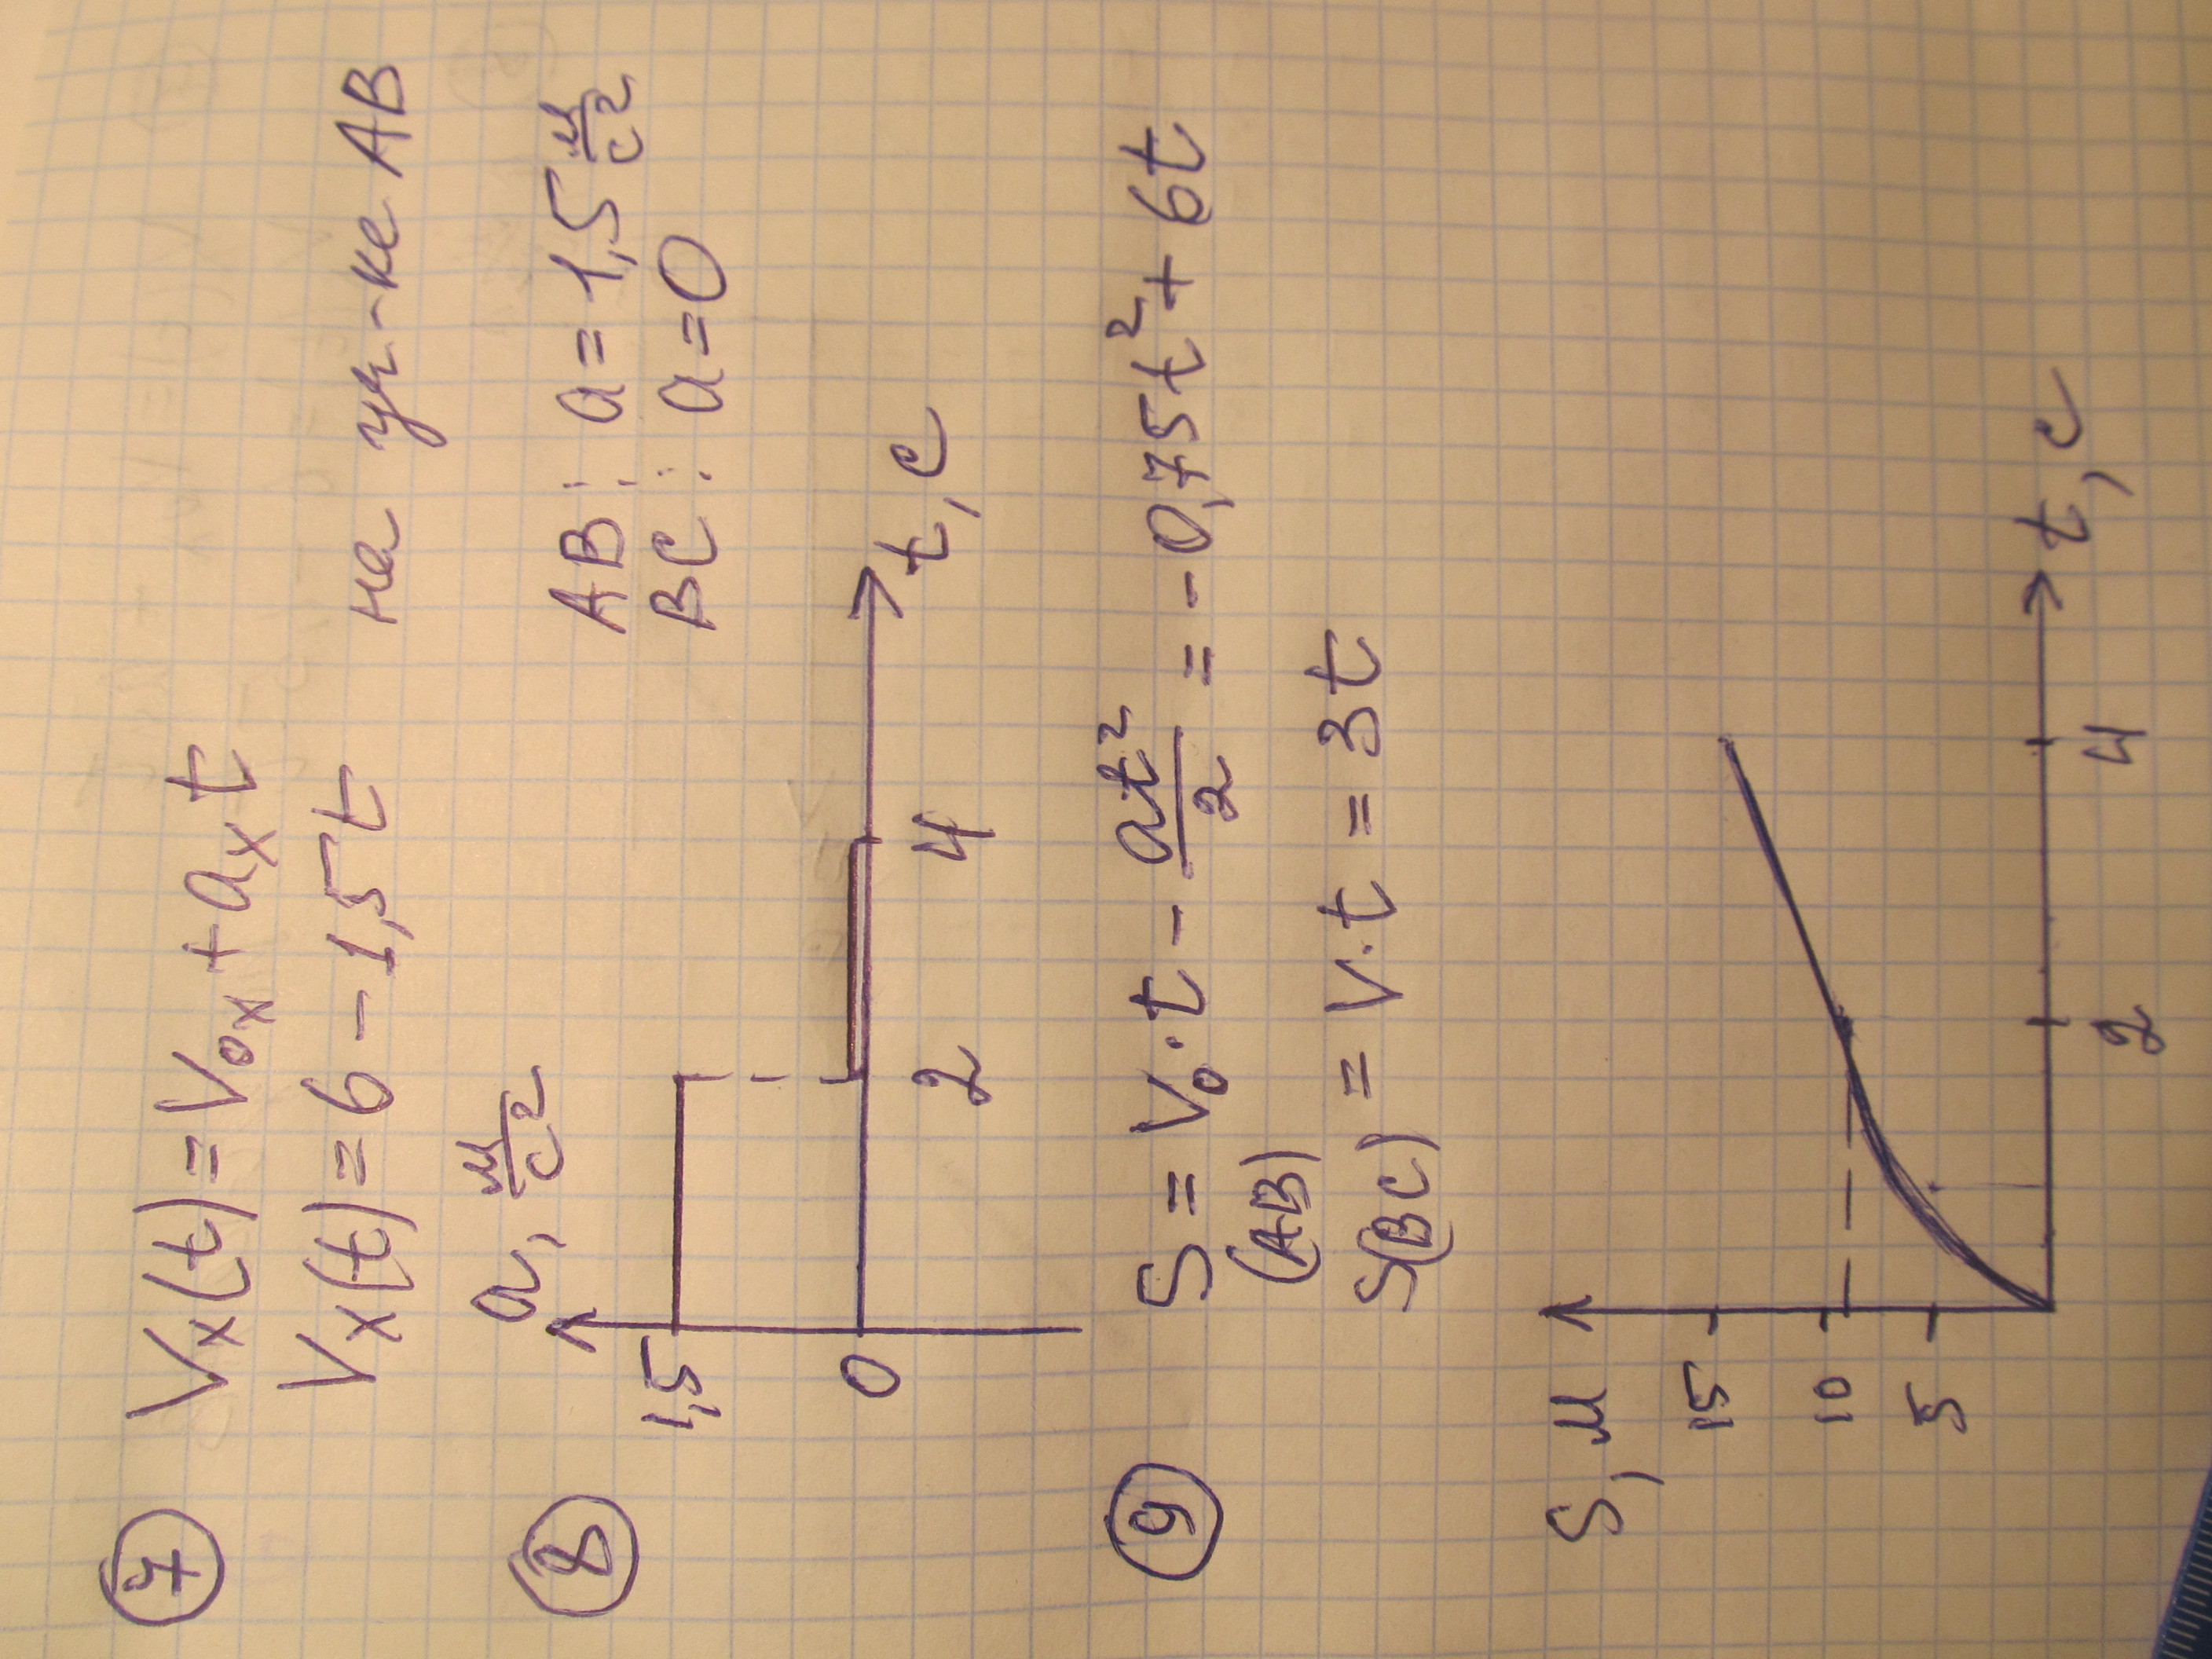 7 Vx(t) = V0x + ax t
Vx(t) = 6 - 1,5t на уч-ке AB
8 a, м/с² AB: a = 1,5 м/с²
BC: a = 0
1,5
0 2 4 t, c
9 S(AB) = V0·t - at²/2 = -0,75t² + 6t
S(BC) = V·t = 3t
S, м
15
10
5
2 4 t, c